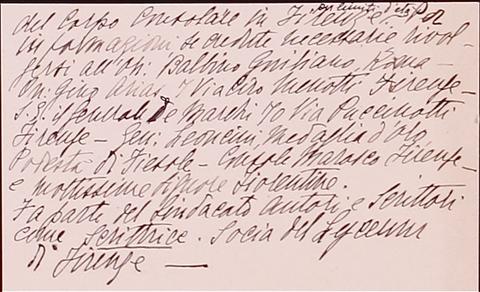 del Corpo Consolare in Firenze. Per
informazioni se credute necessarie rivol-
gersi all'On. Balbino Giuliano, Roma -
On. Gino Arias, 7 Via Ciro Menotti Firenze -
S. E. il Generale De Marchi 70 Via Puccinotti
Firenze - Gen. Leoncini, Medaglia d'Oro,
Podestà di Fiesole - Console Marasco Firenze -
e moltissime Signore Fiorentine.
Fa parte del Sindacato Autori e Scrittori
come Scrittrice. Socia del Lyceum
di Firenze -